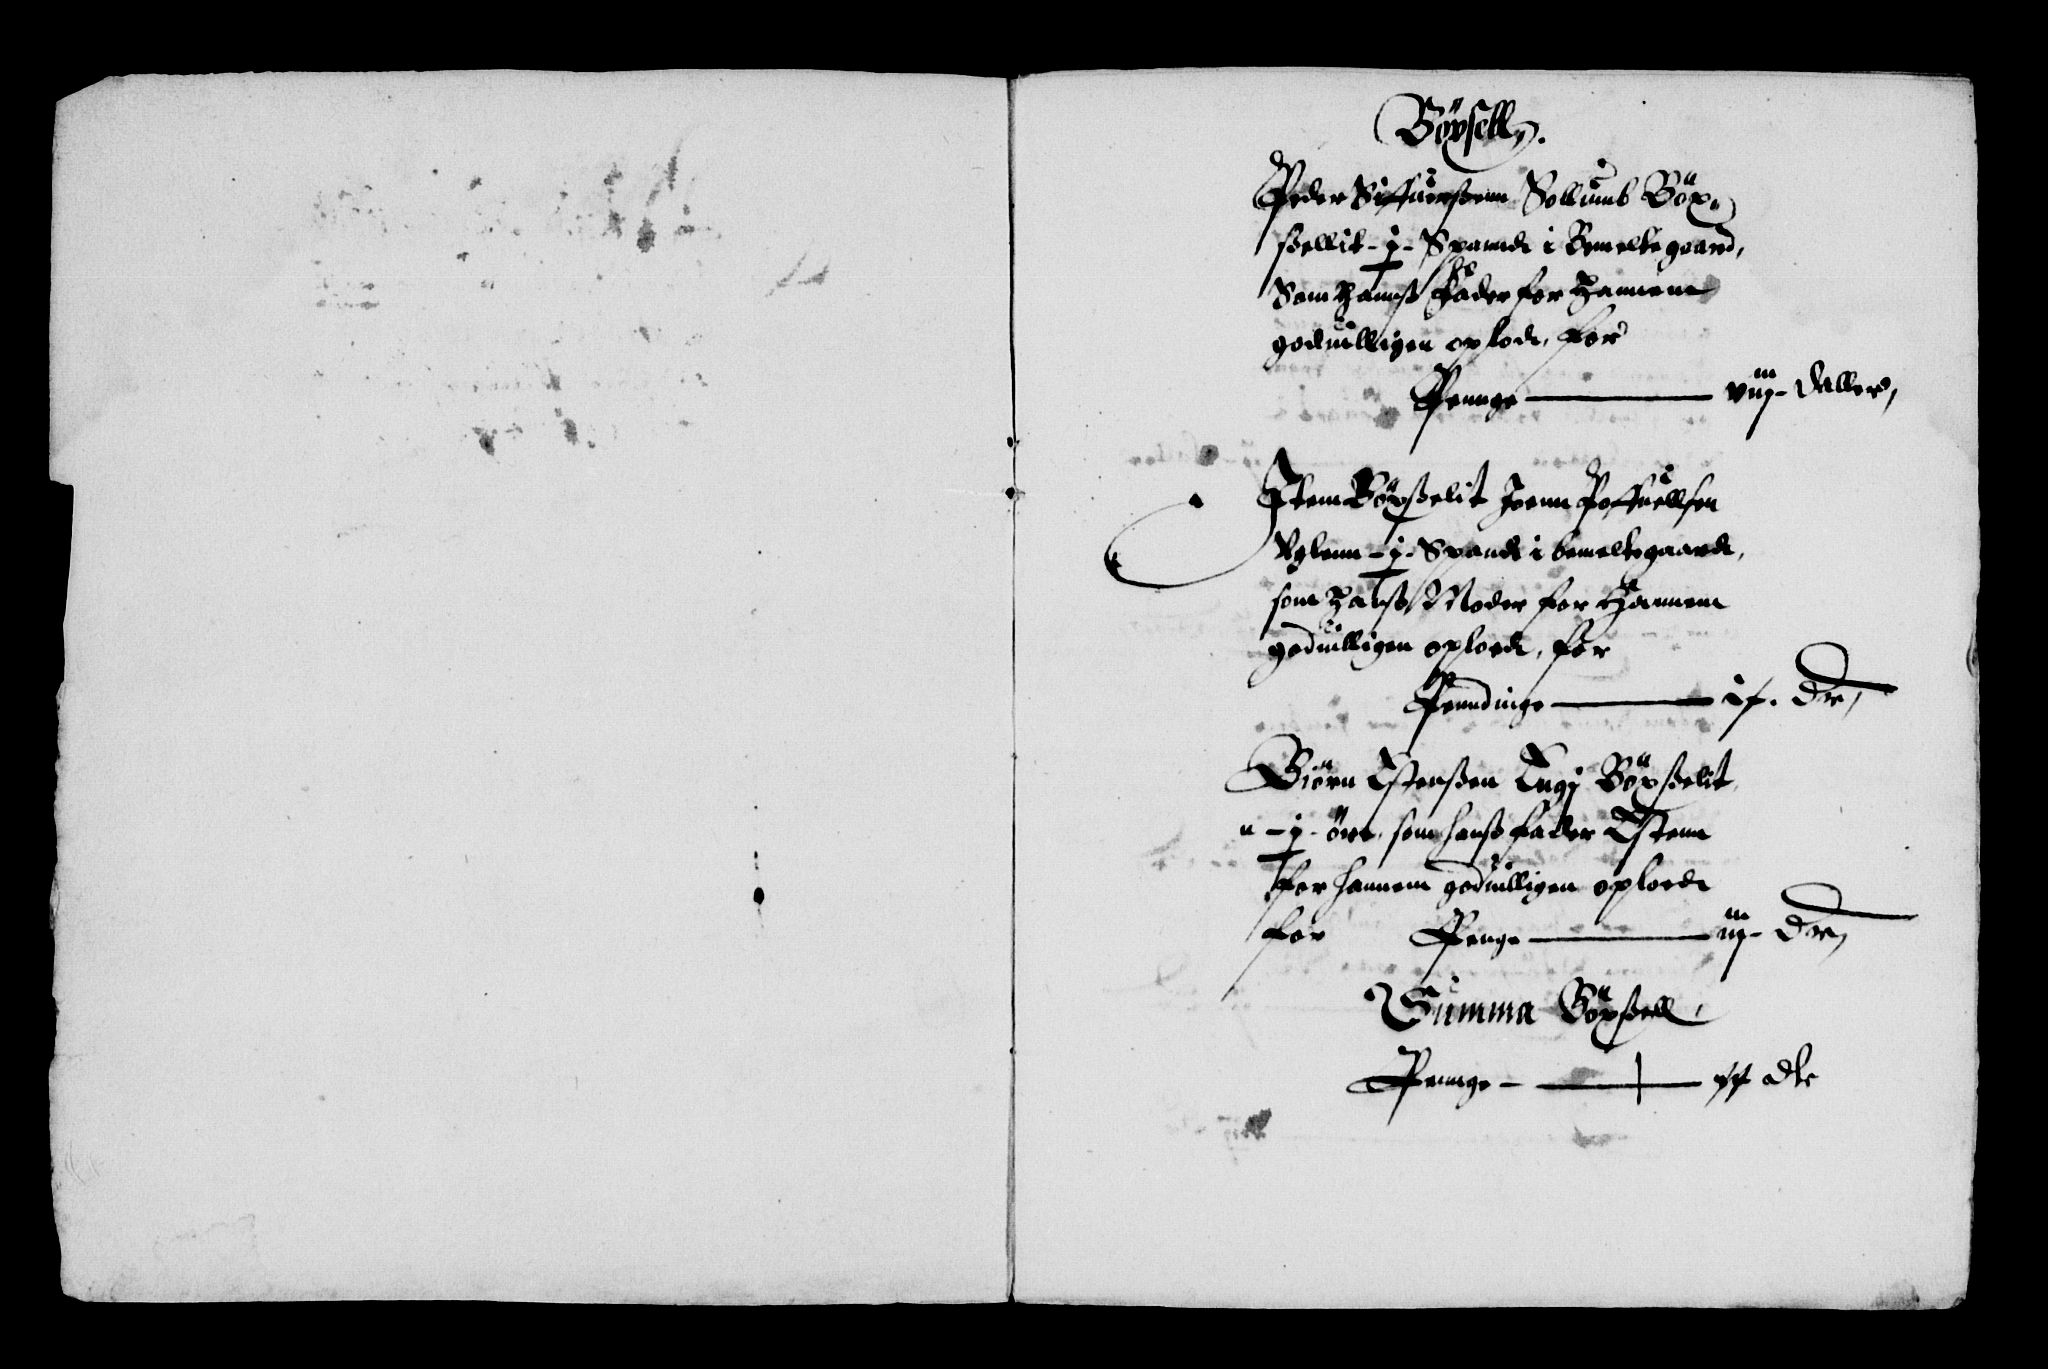 Böxsell.
Peder Siffuerßenn Sollumb Böx-
ßellit - j - Spannd i Bemelte gaard,
Som hannß Fader for Hannem
goduilligen oplod, for
Pennge — viij - daller,
Item Böxßelit Joenn Poffuellsen
- j - Spand i bemelte gaard,
som Hanß Moder for Hannem
goduilligen oploed, for
Penndinge — ix. dr,
Biörn Estenßen Engj Böxßelit
- j - öre, som hanß fader Estenn
for hannem goduilligen oploed
for Penge — iij - dr,
Summa Böxßell,
Pennge — xx dlr